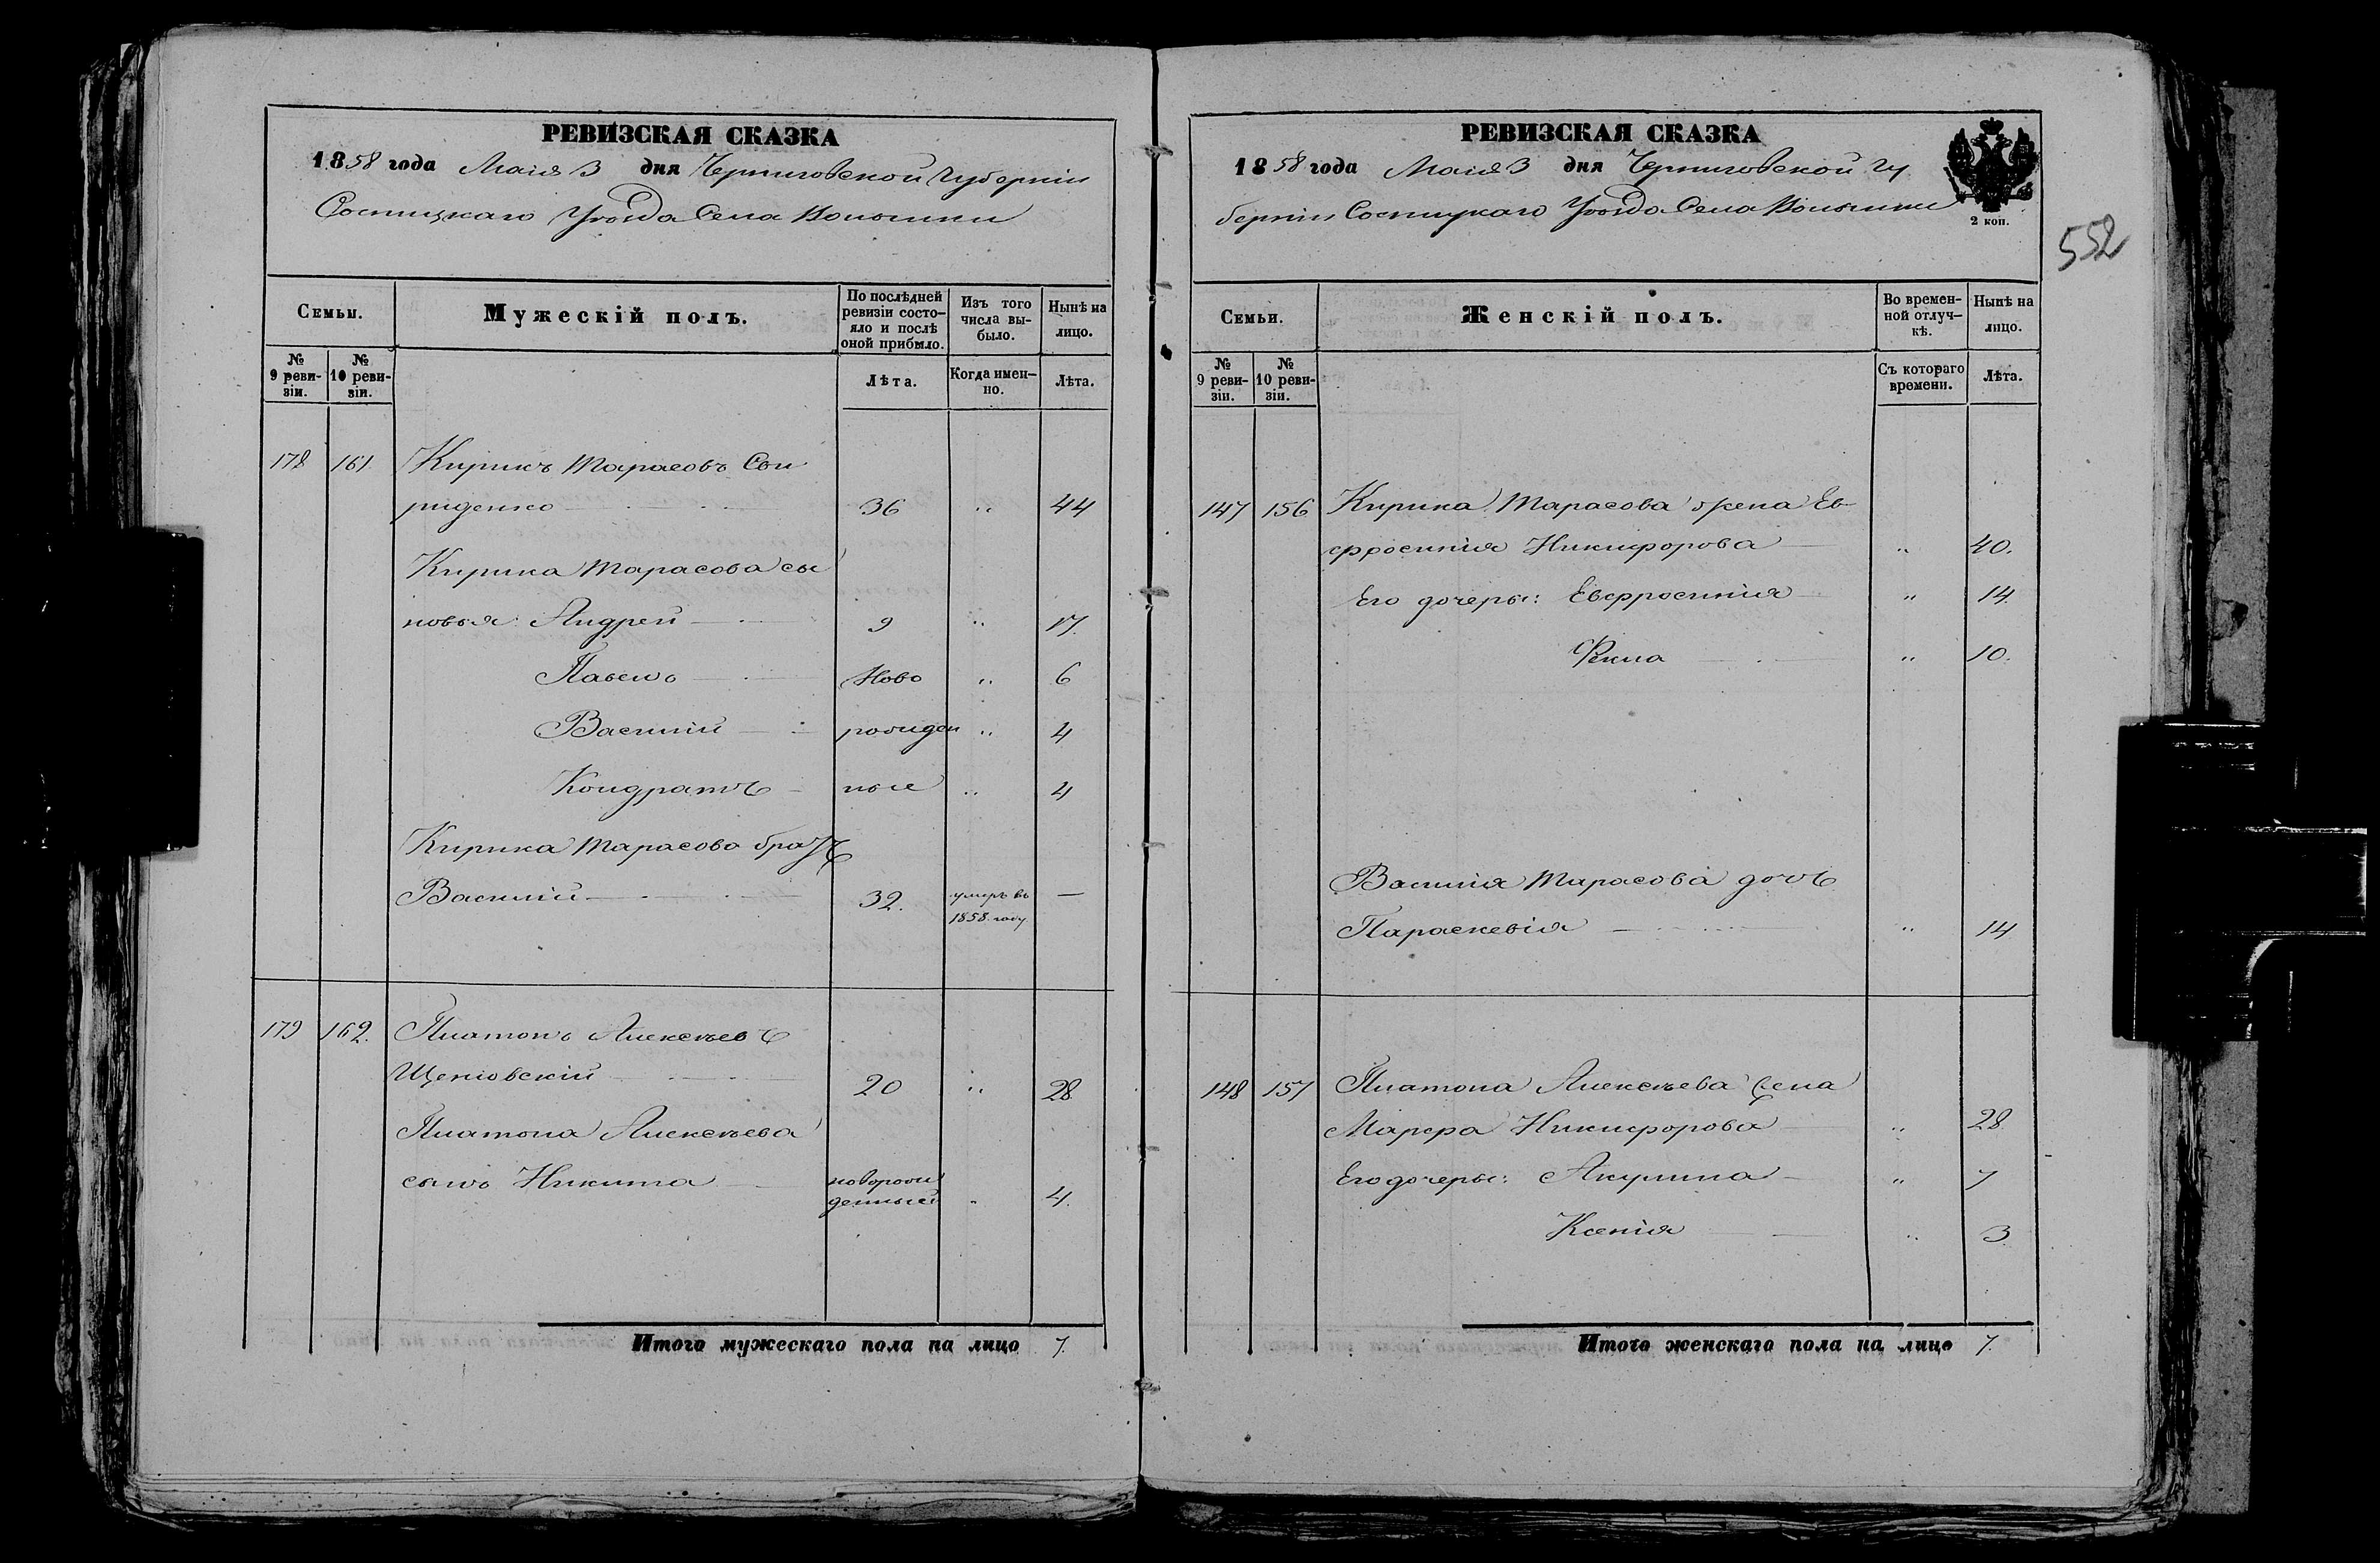 РЕВИЗСКАЯ СКАЗКА
1858 года Маія 3 дня Черниговской Губерніи
Сосницкаго Уѣзда Села Волынки
Семьи.
Мужескій полъ.
По послѣдней ревизіи состо-
яло и послѣ оной прибыло.
Изъ того числа вы-
было.
Нынѣ на лицо.
№ 9 реви-
зіи.
№ 10 реви-
зіи.
Лѣта.
Когда имен-
но.
Лѣта.
178 161 Кирикъ Тарасовъ Сви
риденко 36 " 44
Кирика Тарасова сы
новья: Андрей 9 " 17.
Павелъ Ново " 6
Василій рожден " 4
Кондратъ ные " 4
Кирика Тарасова братъ
Василій 32. умеръ въ 1858 году. —
179 162. Платонъ Алексѣевъ
Щекловскій 20 " 28
Платона Алексѣева
сынъ Никита новорож
денный " 4.
Итого мужескаго пола на лицо 7.
РЕВИЗСКАЯ СКАЗКА
1858 года Маія 3 дня Черниговской Гу
берніи Сосницкаго Уѣзда Села Волынки
2 коп.
552
Семьи.
Женскій полъ.
Во времен-
ной отлуч-
кѣ.
Нынѣ на лицо.
№ 9 реви-
зіи.
№ 10 реви-
зіи.
Съ котораго времени.
Лѣта.
147 156 Кирика Тарасова жена Ев
фросинія Никифорова " 40.
Его дочеры: Евфросинія " 14.
Фекла " 10.
Василія Тарасова дочь
Параскевія " 14
148 157 Платона Алексѣева жена
Марфа Никифорова " 28
Его дочеры: Акулина " 7
Ксенія " 3
Итого женскаго пола на лицо 7.